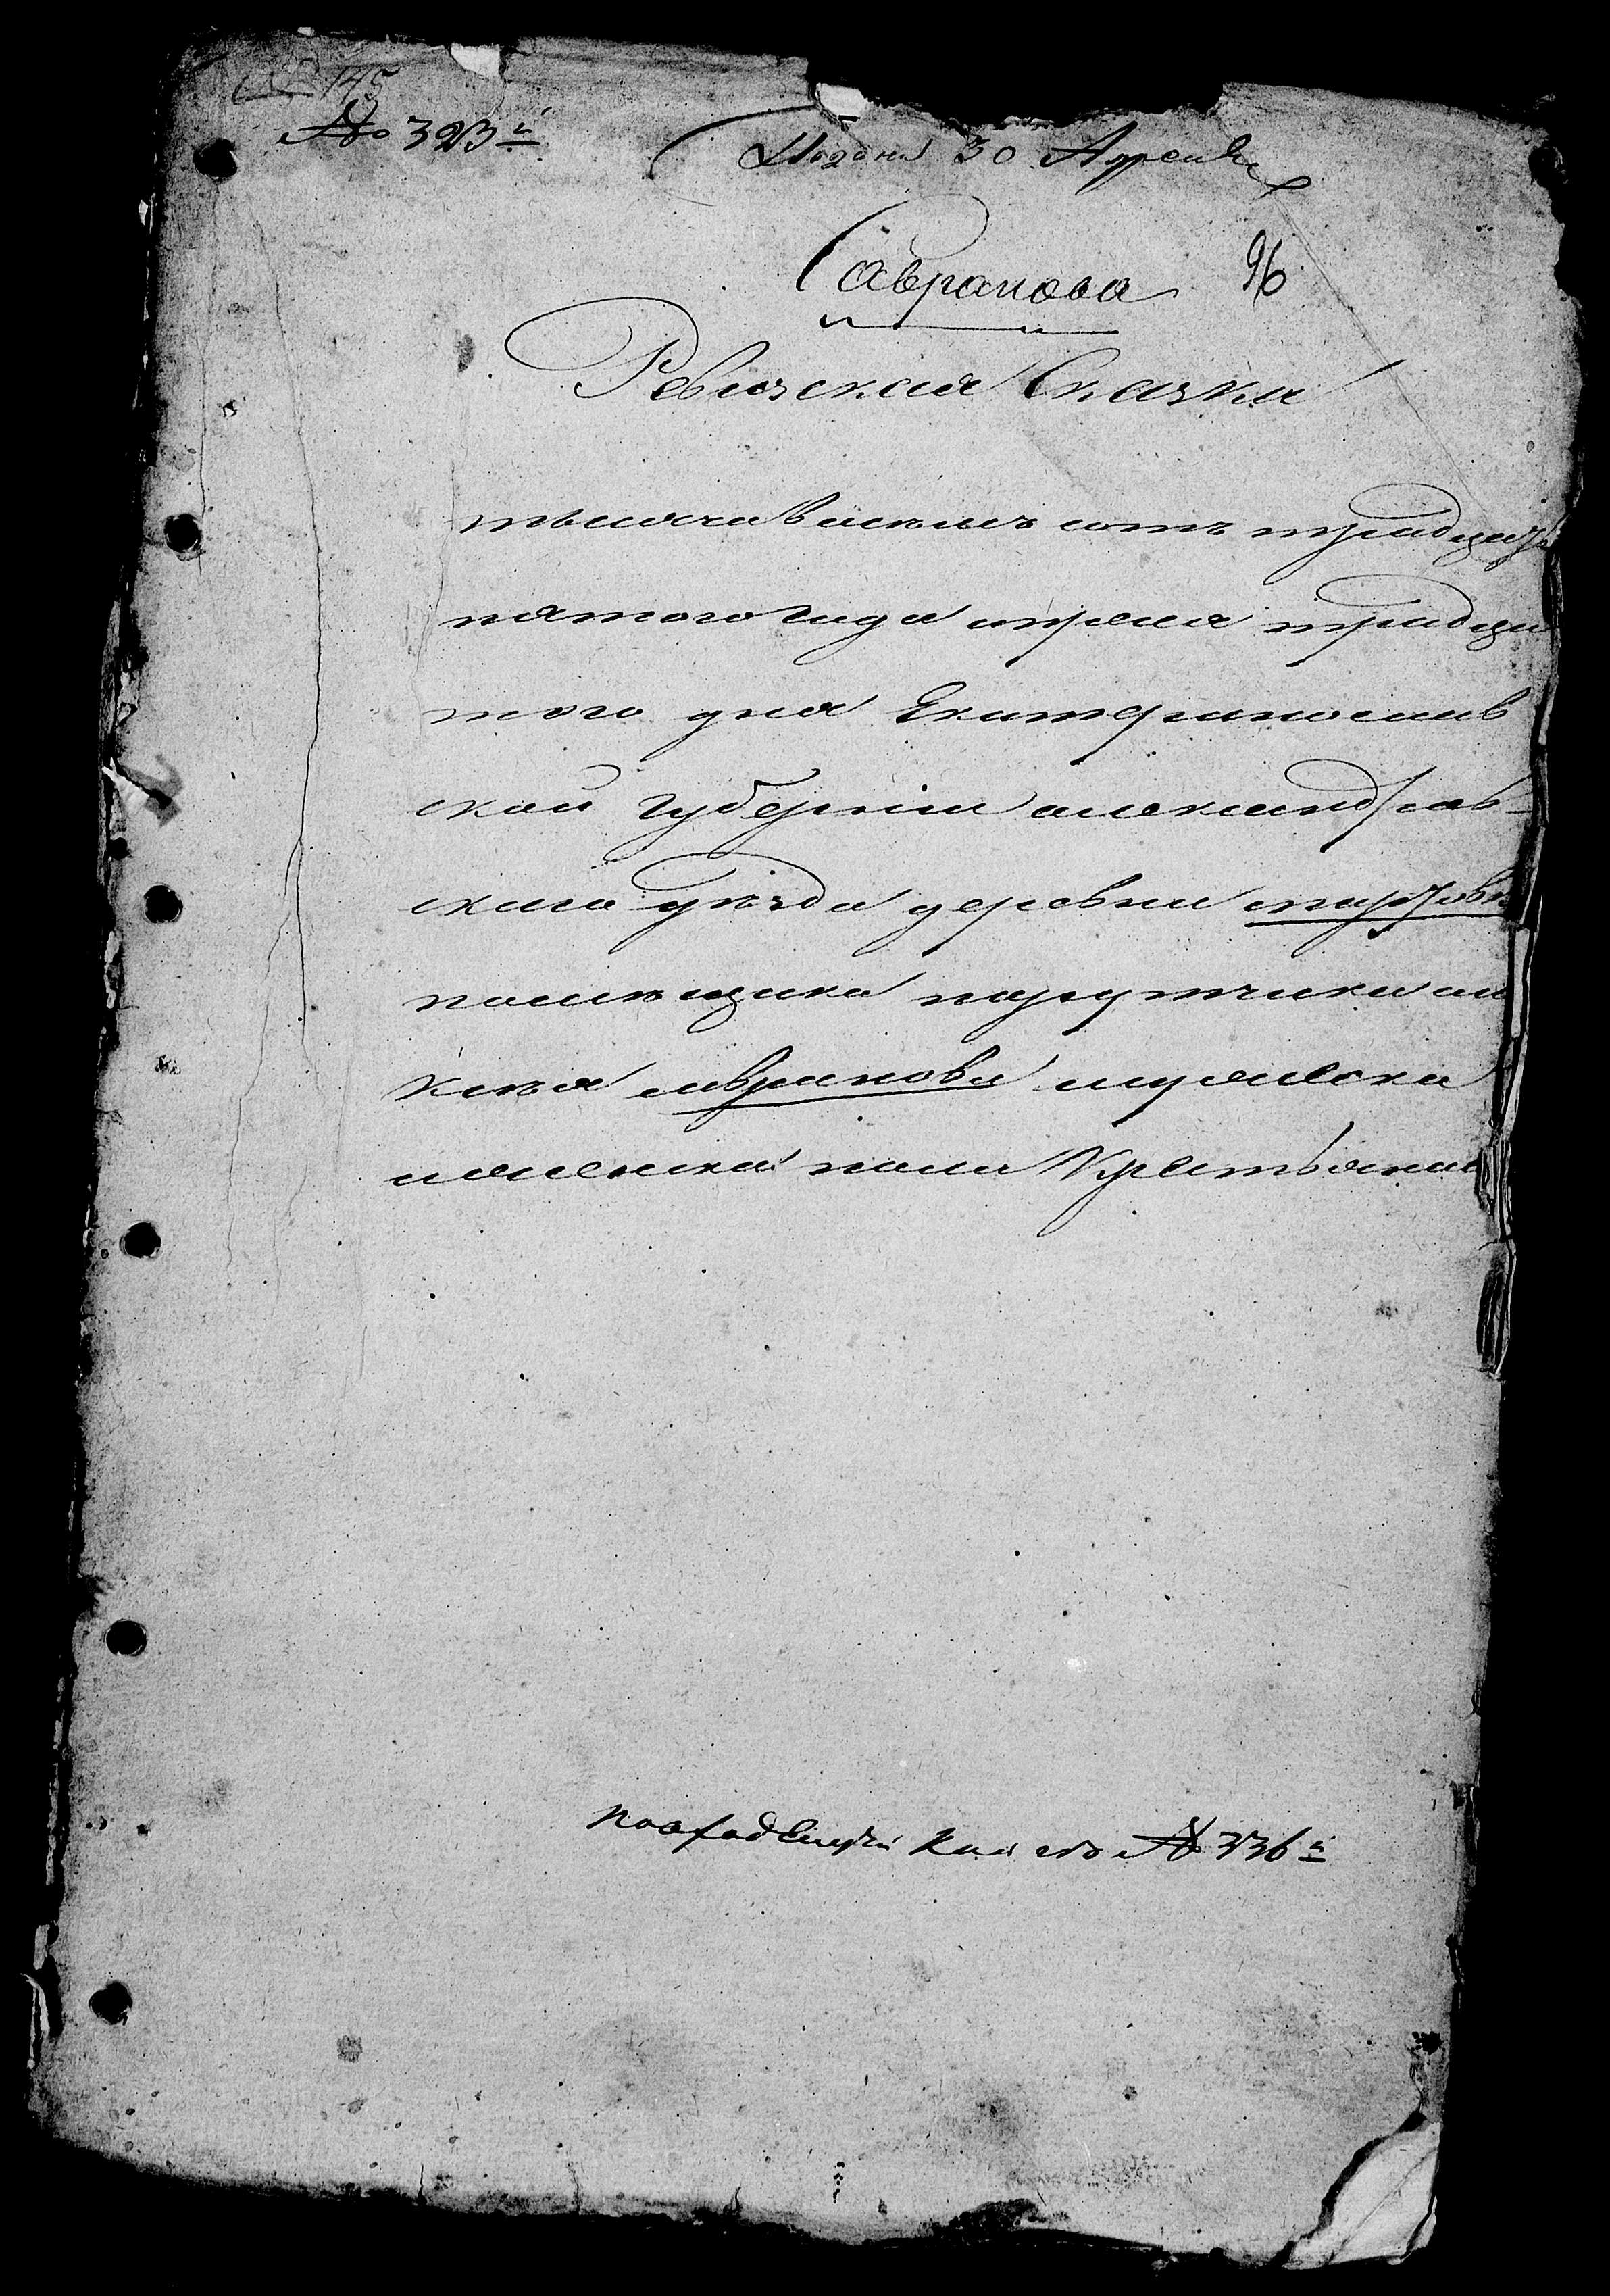 145
№ 323й
Подана 30 Апреля
Савранова 96
Ревизская Сказка
тысяча восемь сотъ тридцать
пятого года апреля тридца
того дня Екатеринослав
ской губернии александров-
скаго уезда деревни
помещика порутчика
савранова мужеска
и женска пола Крестьянах
№ 336й